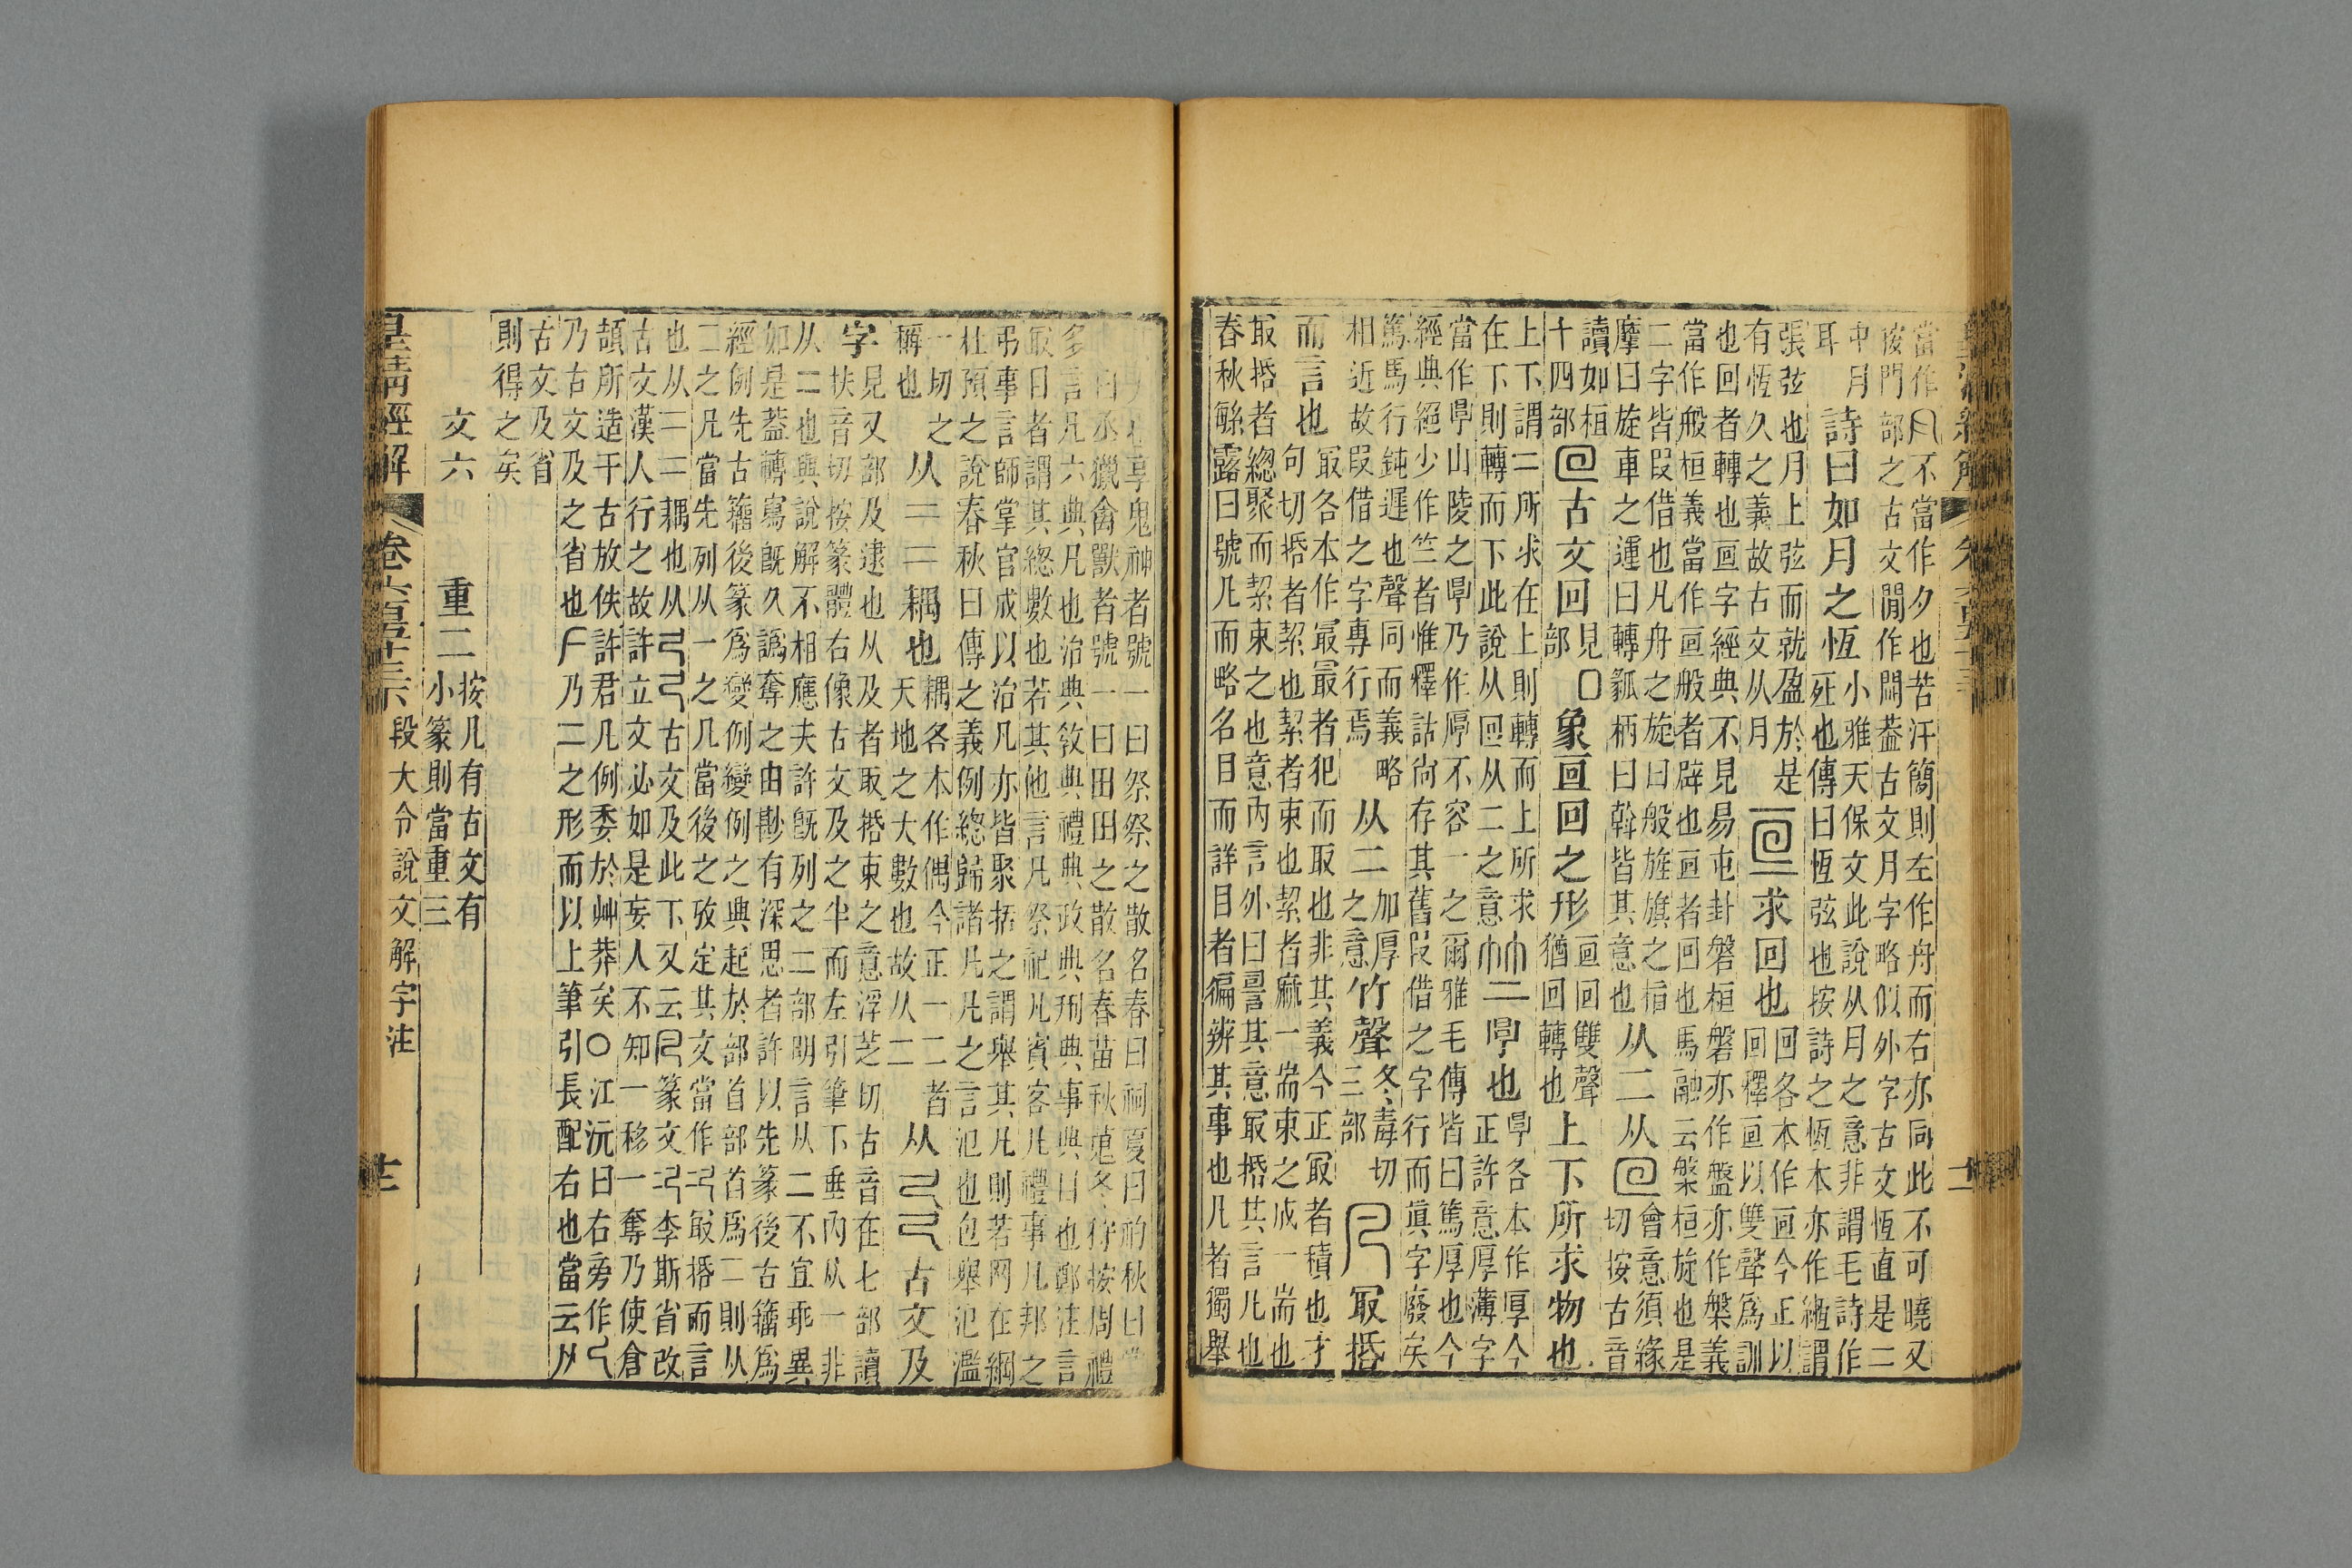 當作𠔼不當作夕也苦汗簡則左作舟而右亦同此不可曉又
按門部之古文閒作閞蓋古文月字略似外字古文恆直是二
中月
耳
詩曰如月之恆
小雅天保文此說从月之意非謂毛詩作
死也傳曰恆弦也按詩之恆本亦作緪謂
張弦也月上弦而就盈於是
有恆久之義故古文从月
求回也
回各本作亘今正以
回釋亘以雙聲爲訓
也回者轉也亘字經典不見易屯卦磐桓磐亦作盤亦作槃義
當作般桓義當作亘般者辟也亘者回也馬融云槃桓旋也是
二字皆叚借也凡舟之旋曰般旌旗之指
摩曰旋車之運曰轉瓢柄曰斡皆其意也
从二从囘
會意須緣
切按古音
讀如桓
十四部
囘古文回
見囗
部
象亘回之形
亘回雙聲
猶回轉也
上下所求物也
上下謂二所求在上則轉而上所求
在下則轉而下此說从囘从二之意
竺㫗也
㫗各本作厚今
正許意厚薄字
當作㫗山陵之㫗乃作厚不容一之爾雅毛傳皆曰篤厚也今
經典絕少作竺者惟釋詁尙存其舊叚借之字行而眞字廢矣
篤馬行鈍遲也聲同而義略
相近故叚借之字專行焉
从二
加厚
之意
竹聲
冬毒切
三部
凡冣括
而言也
冣各本作最冣最者犯而取也非其義今正冣者積也才
句切括者絜也絜者束也絜者麻一耑束之成一耑也
冣括者總聚而絜束之也意內言外曰䛐其意冣括其言凡也
春秋緐露曰號凡而略名目而詳目者徧辨其事也凡者獨舉
大也享鬼神者號一曰祭祭之散名春曰祠夏曰礿秋曰嘗
曰烝獵禽獸者號一曰田田之散名春苗秋蒐冬狩按周禮
多言凡六典凡也治典敎典禮典政典刑典事典目也鄭注言
冣目者謂其總數也若其他言凡祭祀凡賓客凡禮事凡邦之
弔事言師掌官成以治凡亦皆聚括之謂舉其凡則若网在綱
杜預之說春秋曰傳之義例總歸諸凡凡之言氾也包舉氾濫
一切之
稱也
从二二耦也
耦各本作偶今正一二者
天地之大數也故从二
从 古文及
字
見又部及逮也从及者取括束之意浮芝切古音在七部讀
扶音切按篆體右像古文及之半而左引筆下垂內从一非
从二也與說解不相應夫許旣列之二部明言从二不宜乖異
如是蓋轉寫旣久譌奪之由尠有深思者許以先篆後古籒爲
經例先古籒後篆爲變例變例之典起於部首部首爲二則从
二之凡當先列从一之凡當後之攷定其文當作 冣括而言
也从二二耦也从 古文及此下又云 篆文 李斯省改
古文漢人行之故許立文必如是妄人不知一移一奪乃使倉
頡所造千古放佚許君凡例委於艸莽矣○江沅曰右旁作
乃古文及之省也 乃二之形而以上筆引長配右也當云从
古文及省
則得之矣
文六 重二
按凡有古文有
小篆則當重三
皇清經解 卷六百五十三下 段大令說文解字注